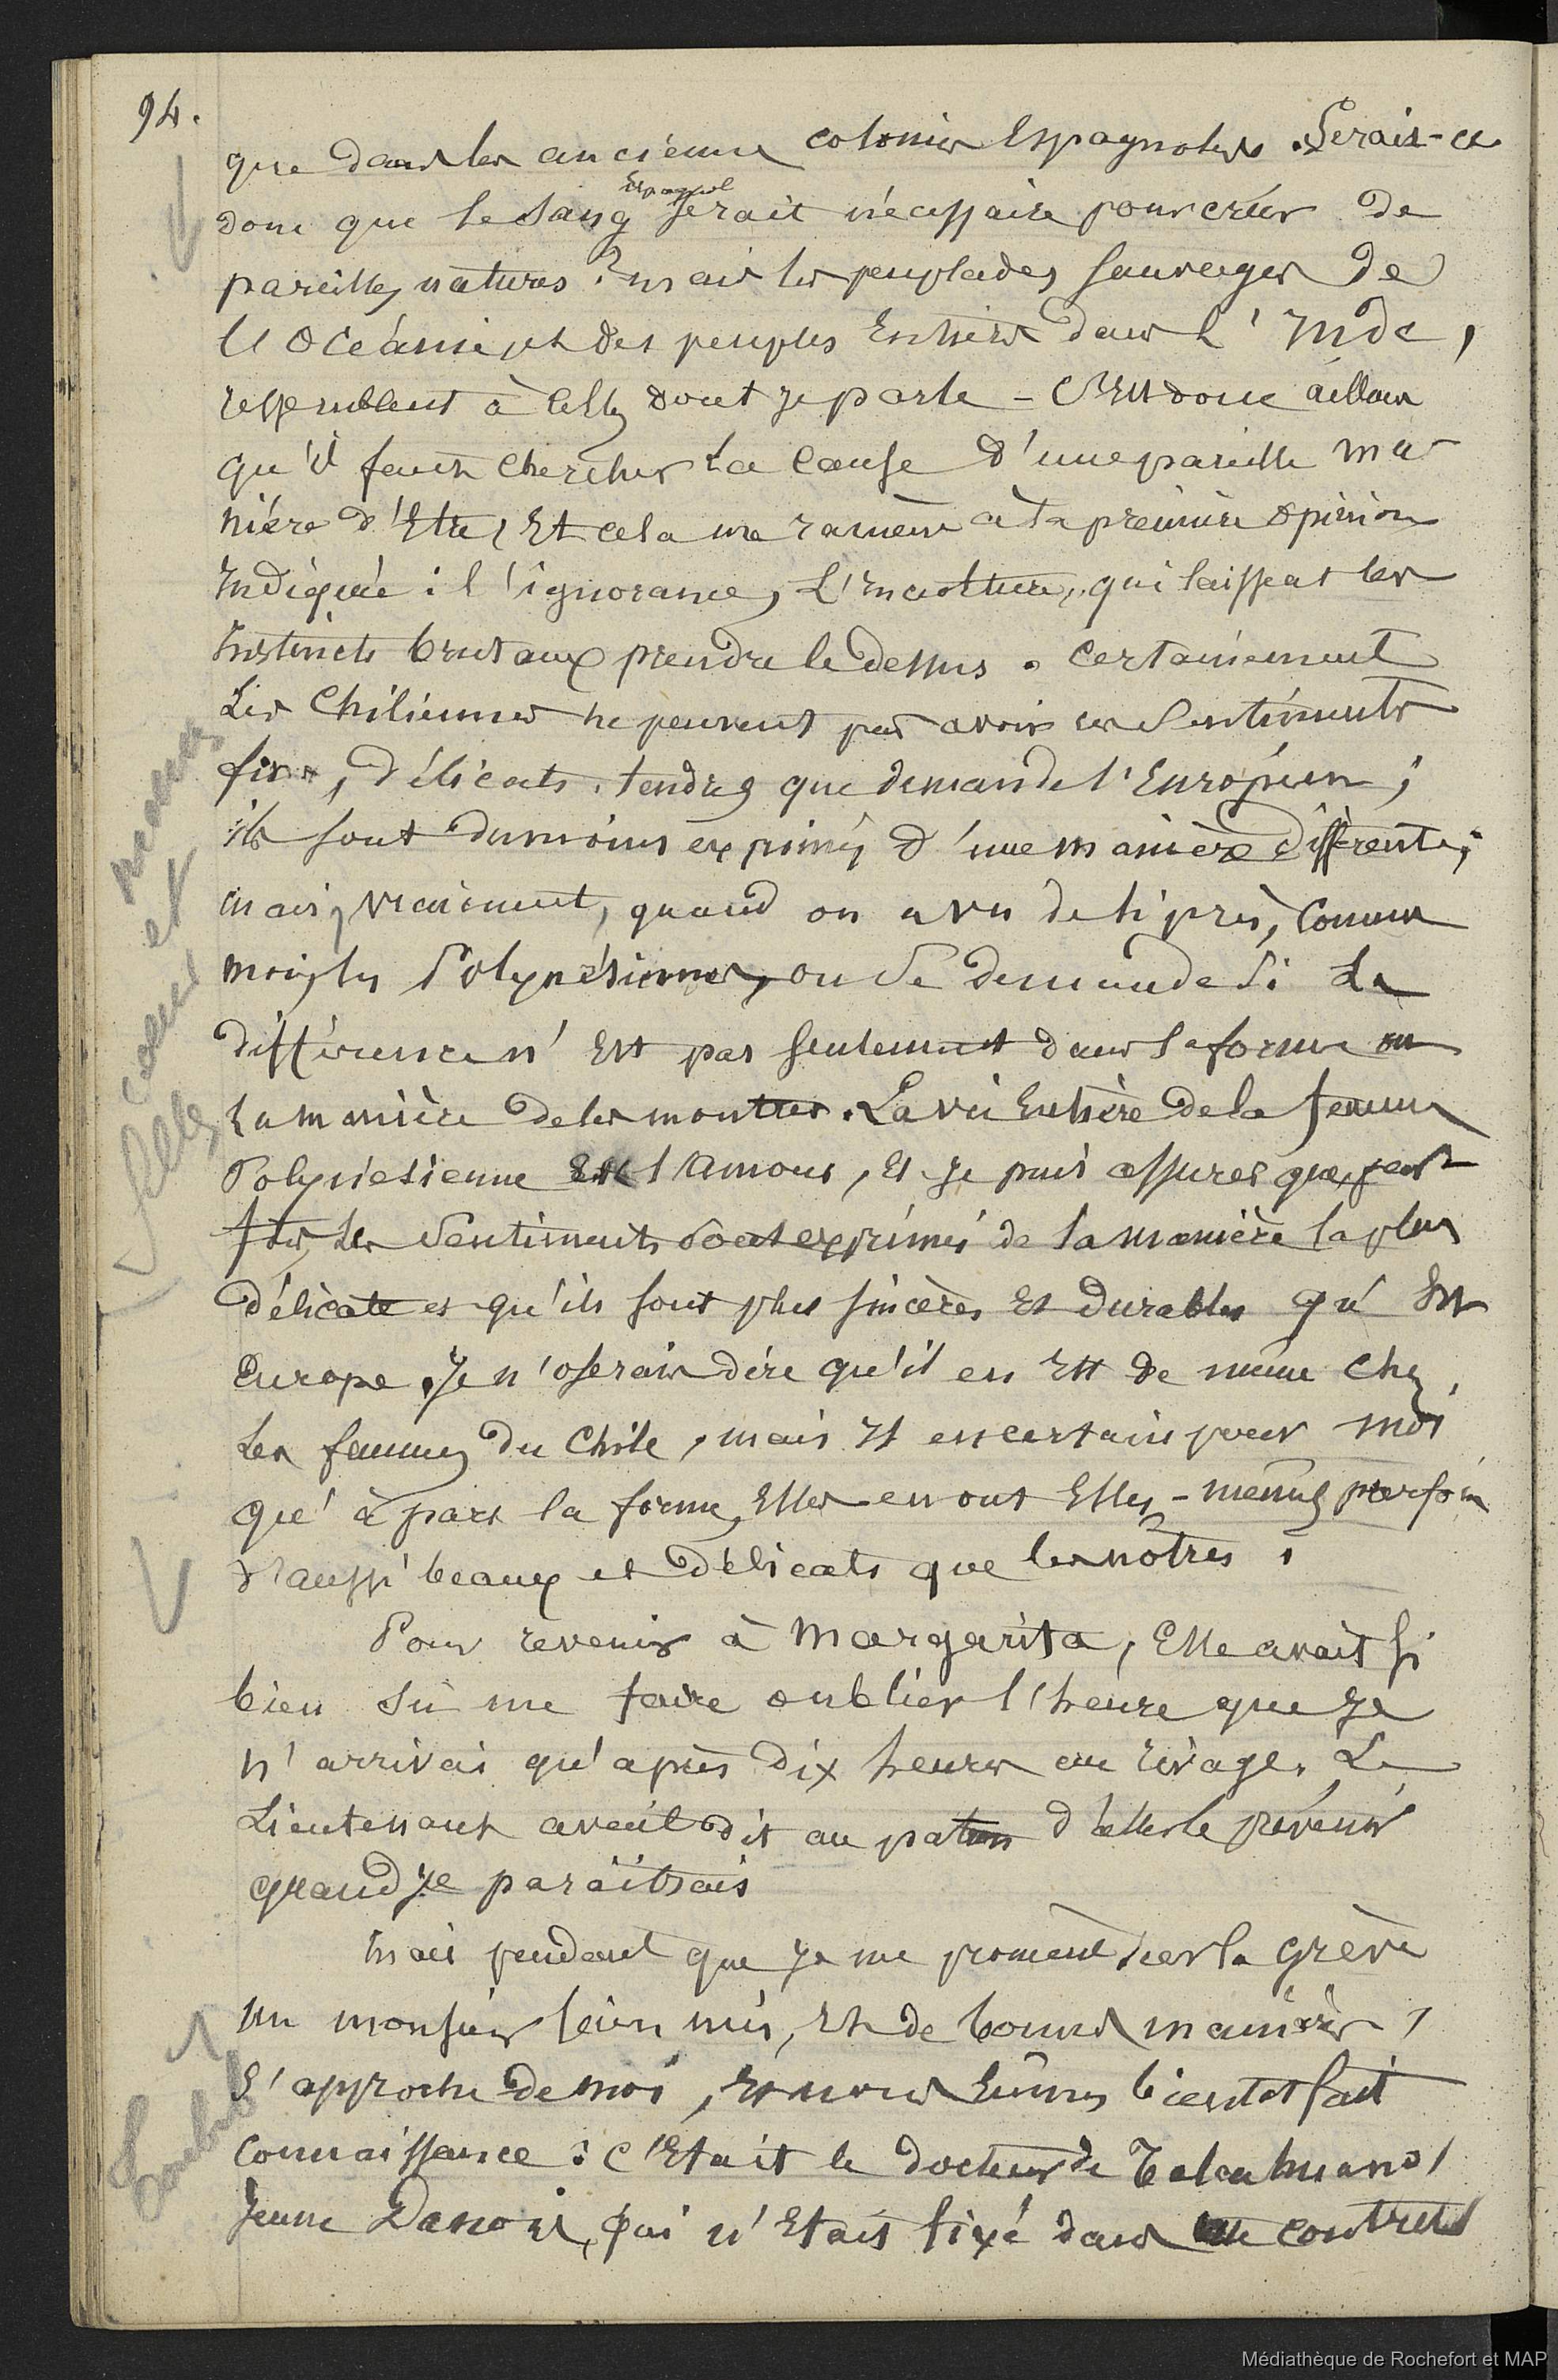 94.
que dans les anciennes colonies Espagnoles. Serait-ce
donc que le sang Espagnol serait nécessaire pour créer de
pareilles natures ? mais les peuplades sauvages de
l'Océanie, et des peuples Entiers dans l'Inde,
ressemblent à celles dont je parle - C'est donc ailleurs
qu'il faut chercher la cause d'une pareille ma
nière d'Etre, Et cela me ramène à la première opinion
Indiquée : l'ignorance, L'Inculture, qui laissent les
Instincts brutaux prendre le dessus. Certainement
Les Chiliennes ne peuvent pas avoir les sentiments
fins, délicats, tendres que demande l'Européen ;
ils sont du moins exprimés d'une manière différente ;
mais, vraiment, quand on a vu de si près, comme
moi, les Polynésiennes, on se demande si La
différence n'Est pas seulement dans la forme ou
la manière de les montrer. La vie Entière de la femme
Polynésienne Est l'Amour, Et je puis assurer que, parfois
, les sentiments sont exprimés de la manière la plus
délicate et qu'ils sont plus sincères Et durables qu'En
Europe. Je n'oserais dire qu'il en Est de même chez
Les femmes du Chili, mais Il est certain pour moi
qu'à part la forme, Elles en ont Elles-mêmes parfois
d'aussi beaux et délicats que les nôtres.
Pour revenir à Margarita, Elle avait si
bien su me faire oublier l'heure que je
n'arrivai qu'après dix heures au rivage. Le
Lieutenant avait dit au patron d'aller le prévenir
quand je paraîtrais
Mais pendant que je me promène sur la grève
un monsieur bien mis, Et de bonnes manières,
s'approche de moi, Et nous Eûmes bientôt fait
connaissance : c'Etait le docteur de Talcahuano,
Jeune Danois, qui n'Etait fixé dans une contrée
Médiathèque de Rochefort et MAP